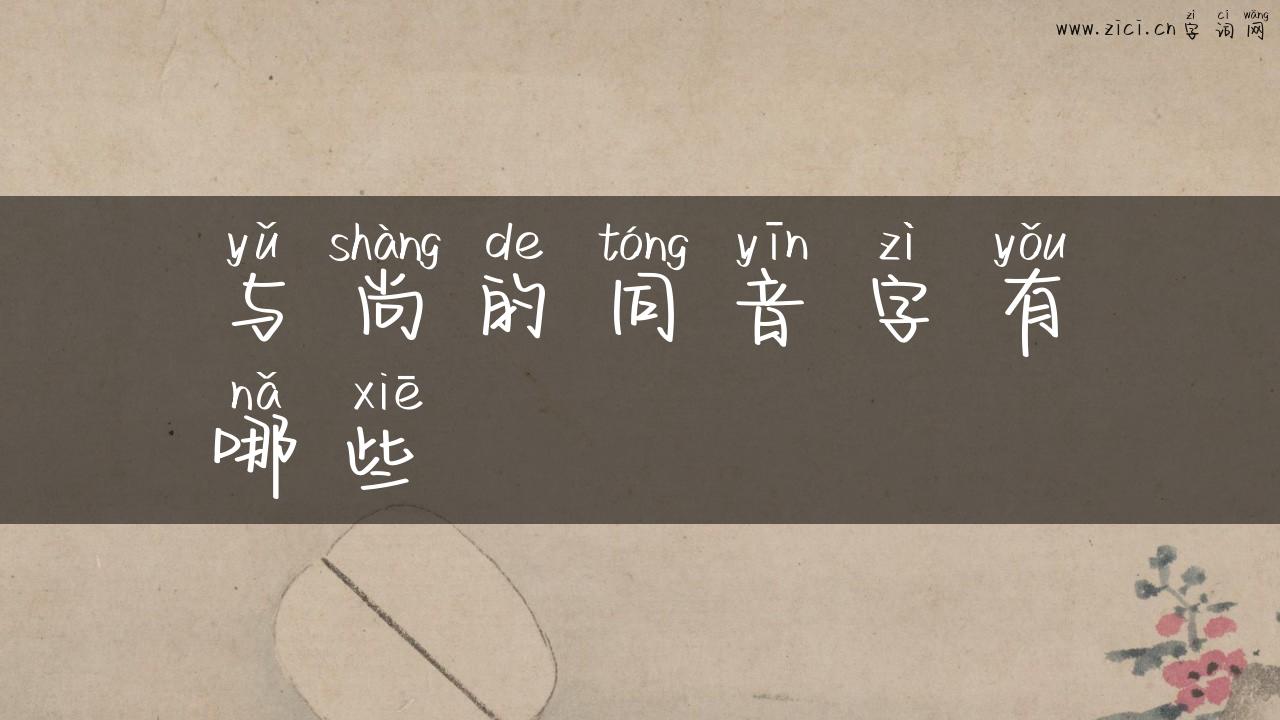 zì cí wǎng
www.zici.cn 字 词 网
yǔ shàng de tóng yīn zì yǒu
与 尚 的 同 音 字 有
nǎ xiē
哪 些